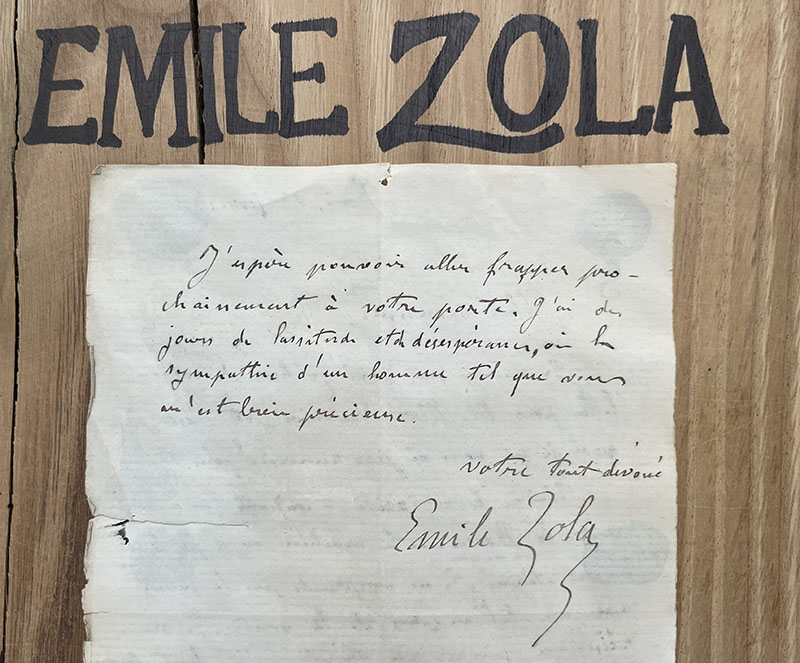 EMILE ZOLA
J'espère pouvoir aller frapper pro-
chainement à votre porte. J'ai des
jours de lassitude et de désespérance, où la
sympathie d'un homme tel que vous
m'est bien précieuse.
Votre tout dévoué
Emile Zola